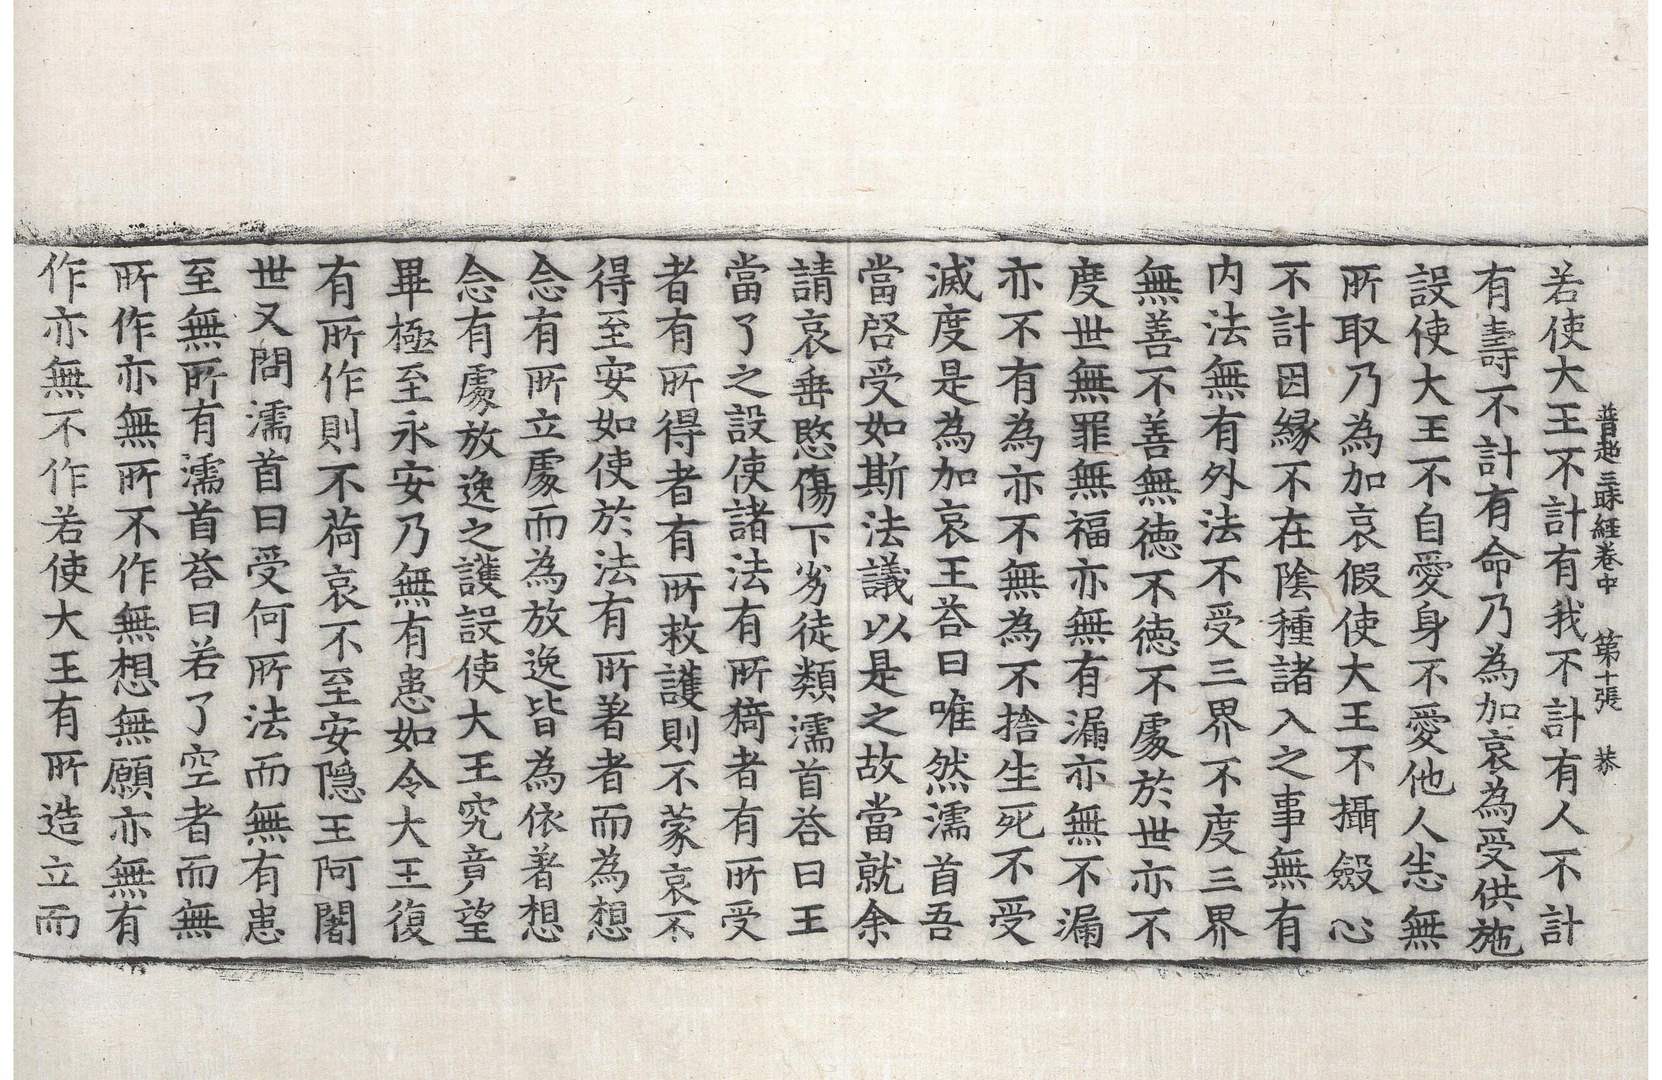 普超三昧經卷中　第十張　恭
若使大王不計有我不計有人不計
有壽不計有命乃為加哀為受供施
設使大王不自愛身不愛他人恙無
所取乃為加哀假使大王不攝斂心
不計因緣不在陰種諸入之事無有
内法無有外法不受三界不度三界
無善不善無德不德不處於世亦不
度世無罪無福亦無有漏亦無不漏
亦不有為亦不無為不捨生死不受
滅度是為加哀王荅曰唯然濡首吾
當啓受如斯法議以是之故當就余
請哀垂愍傷下劣徒類濡首荅曰王
當了之設使諸法有所猗者有所受
者有所得者有所救護則不蒙哀不
得至安如使於法有所著者而為想
念有所立處而為放逸皆為依著想
念有處放逸之護設使大王究竟望
畢極至永安乃無有患如令大王復
有所作則不荷哀不至安隱王阿闍
世又問濡首曰受何所法而無有患
至無所有濡首荅曰若了空者而無
所作亦無所不作無想無願亦無有
作亦無不作若使大王有所造立而